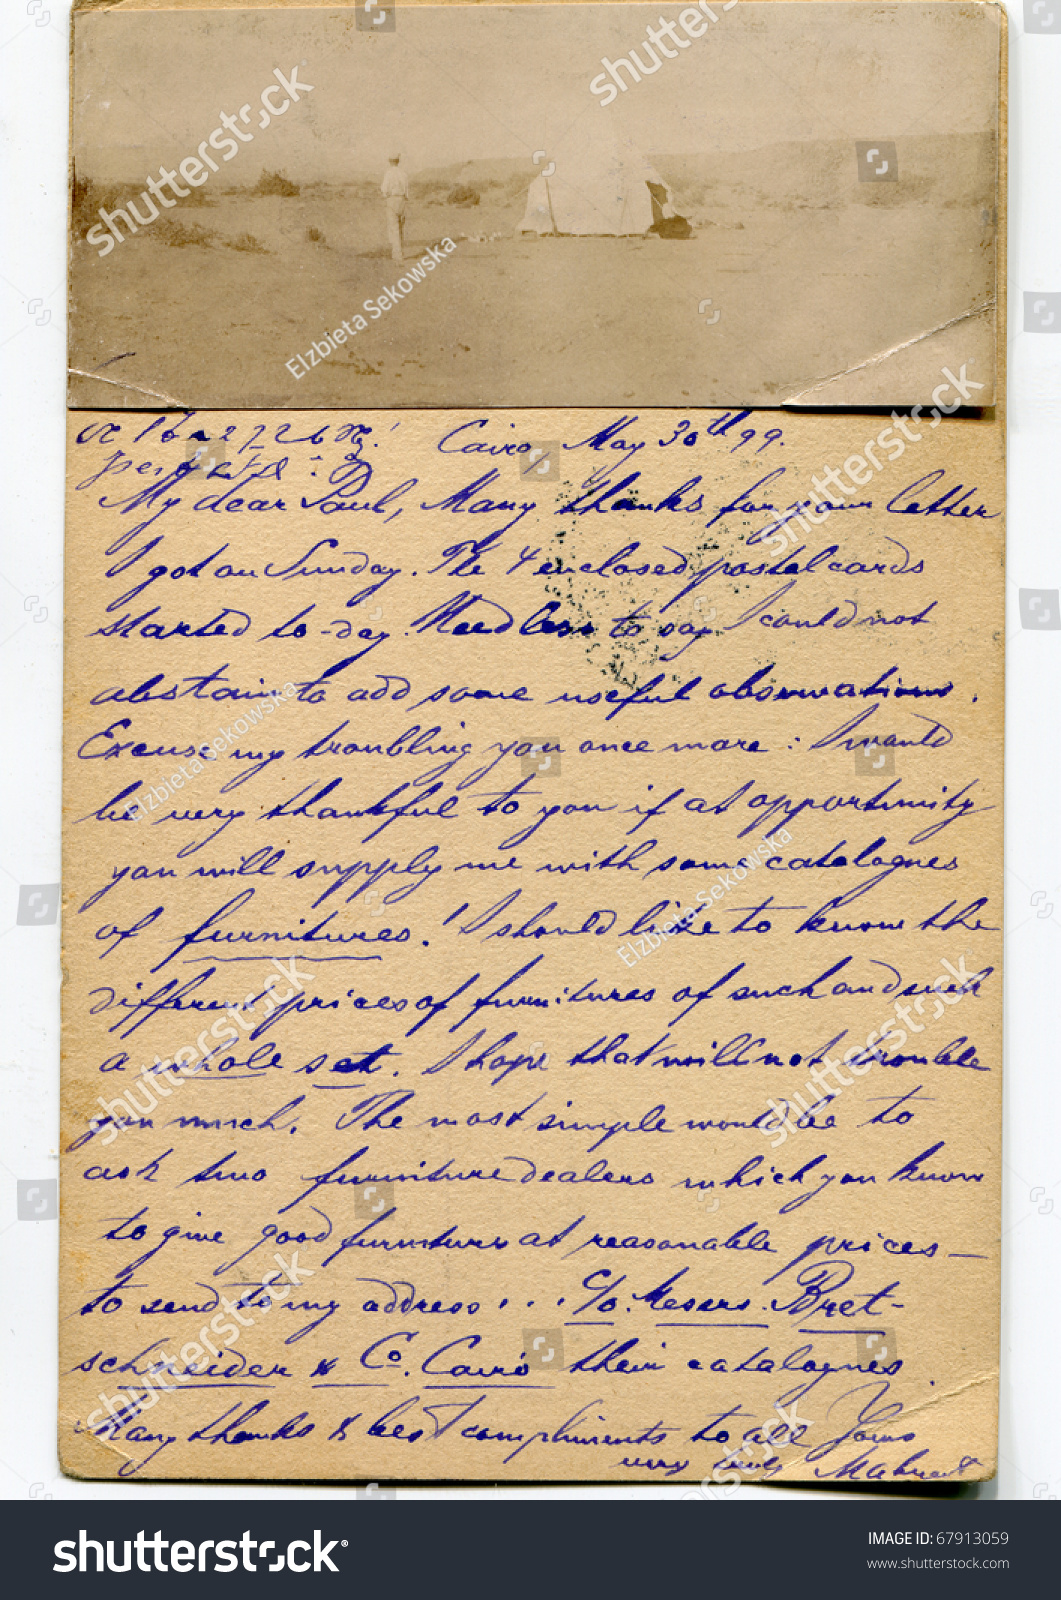 Cairo May 30th 99.
My dear Paul, Many thanks for your letter
I got on Sunday. The 4 enclosed postal cards
started to-day. Needless to say I could not
abstain to add some useful observations.
Excuse my troubling you once more: I would
be very thankful to you if at opportunity
you will supply me with some catalogues
of furnitures! I should like to know the
different prices of furnitures of such and such
a whole set. I hope that will not trouble
you much. The most simple would be to
ask two furniture dealers which you know
to give good furniture at reasonable prices —
to send to my address ... c/o. Messrs. Bret-
schneider & Co. Cairo their catalogues.
Many thanks & best compliments to all Yours
very truly
shutterstock
Elzbieta Sekowska
shutterstock
IMAGE ID: 67913059
www.shutterstock.com